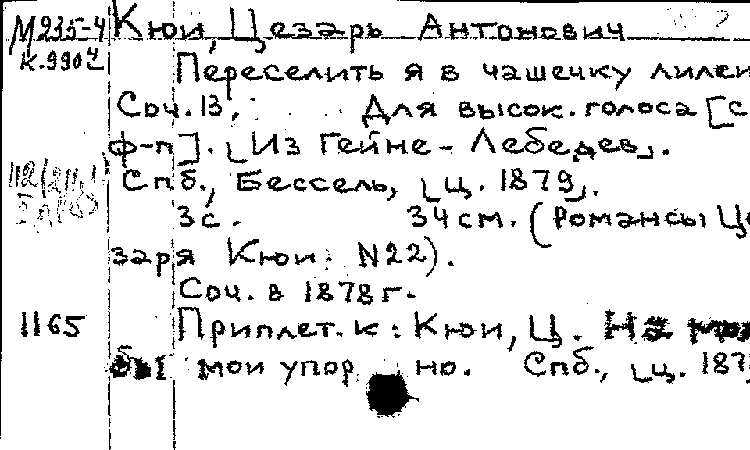 М235-4 Кюи, Цезарь Антонович
К.990ч
Переселить я в чашечку лилеи
Соч. 13. Для высок. голоса [с
ф-п]. [Из Гейне - Лебедев].
Спб., Бессель, [ц. 1879].
3 с. 34 см. (Романсы Це
заря Кюи. N22).
Соч. в 1878 г.
1165 Приплет. к: Кюи, Ц. На
бы мои упорно. Спб., [ц. 187